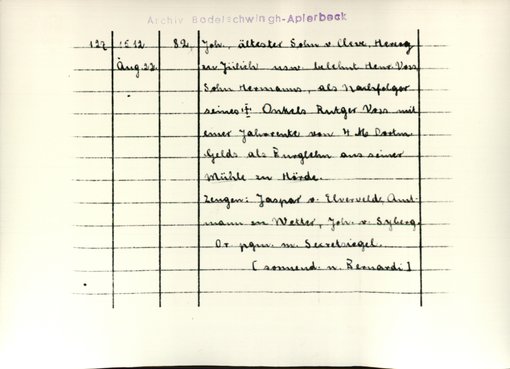 Archiv Bodelschwingh-Aplerbeck
122 1512 82, Joh., ältester Sohn v. Cleve, Herzog
Aug. 22. zu Jülich usw. belehnt Henr. Voss
Sohn Hermanns, als Nachfolger
seines Onkels Rutger Voss mit
einer Jahrrente von 4 M. Dortm.
Gelds als Burglehn aus seiner
Mühle zu Hörde.
Zeugen: Jaspar v. Elverveld, Amt-
mann zu Wetter, Joh. v. Syberg.
Or. pgm. m. Secretsiegel.
[sonnend. n. Bernardi]